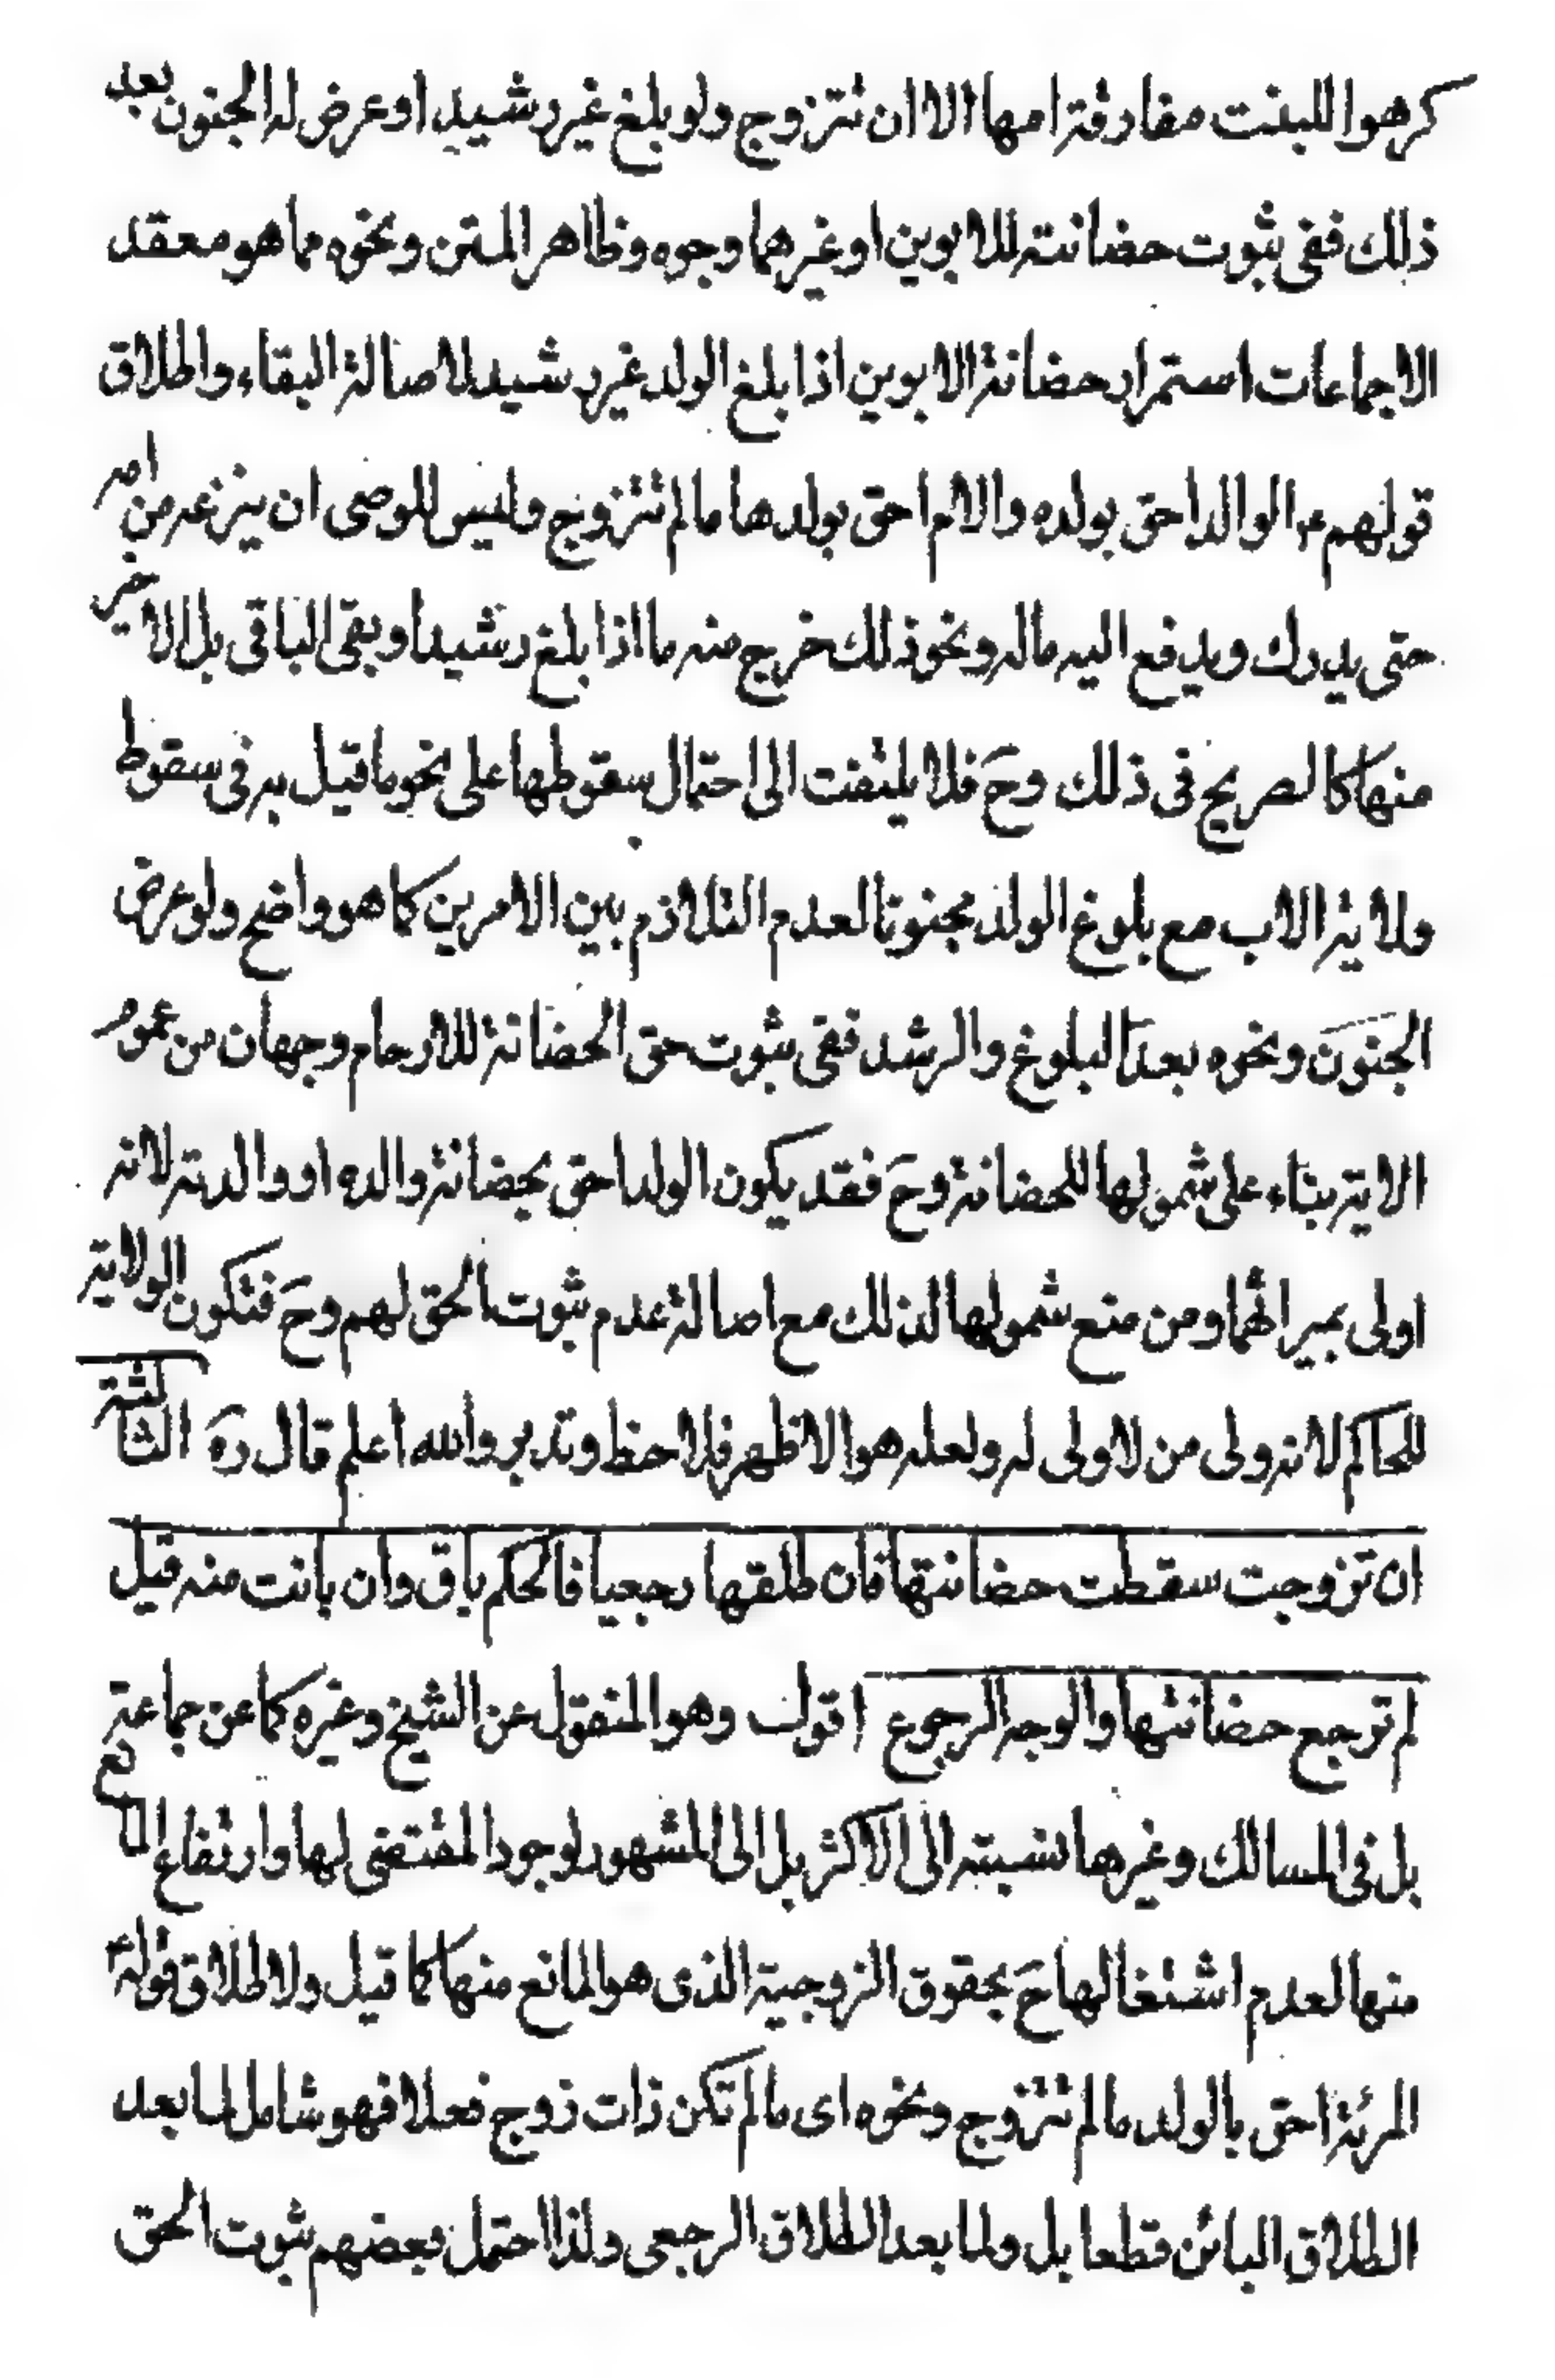 كرهوا للبنت مفارقة امها الا ان تتزوج ولو بلغ غير رشيد او عرض له الجنون بعد
ذلك ففى ثبوت حضانته للابوين او غيرهما وجوه وظاهر المتن ونحوه مما هو معقد
الاجماعات استمرار حضانة الابوين اذا بلغ الولد غير رشيد لاصالة البقاء واطلاق
قولهم ع الوالد احق بولده والام احق بولدها ما لم تتزوج وليس للوصى ان ينزعه من امه
حتى يدرك ويدفع اليه ماله ونحو ذلك خرج منه ما اذا بلغ رشيدا وبقى الباقى بل الاخير
منها كالصريح فى ذلك وح فلا يلتفت الى احتمال سقوطها على نحو ما قيل به فى سقوط
ولاية الاب مع بلوغ الولد مجنونا لعدم التلازم بين الامرين كما هو واضح ولو عرض
الجنون ونحوه بعد البلوغ والرشد ففى ثبوت حق الحضانة للارحام وجهان من عموم
الاية بناء على شمولها للحضانة وح فقد يكون الولد احق بحضانة والده او والدته لانه
اولى بميراثهما ومن منع شمولها لذلك مع اصالة عدم ثبوت الحق لهم وح فتكون الولاية
للحاكم لانه ولى من لا ولى له ولعله هو الاظهر فلاحظ وتدبر والله اعلم قال ره الثالثة
ان تزوجت سقطت حضانتها فان طلقها رجعيا فالحكم باق وان بانت منه قيل
لم ترجع حضانتها والوجه الرجوع اقول وهو المنقول عن الشيخ وغيره كما عن جماعة
بل فى المسالك وغيرها نسبته الى الاكثر بل الى المشهور لوجود المقتضى لها وارتفاع المانع
منها لعدم اشتغالها ح بحقوق الزوجية الذى هو المانع منها كما قيل ولاطلاق قوله ع
المرئة احق بالولد ما لم تتزوج ونحوه اى ما لم تكن ذات زوج فعلا فهو شامل لما بعد
الطلاق البائن قطعا بل ولما بعد الطلاق الرجعى ولذا احتمل بعضهم ثبوت الحق